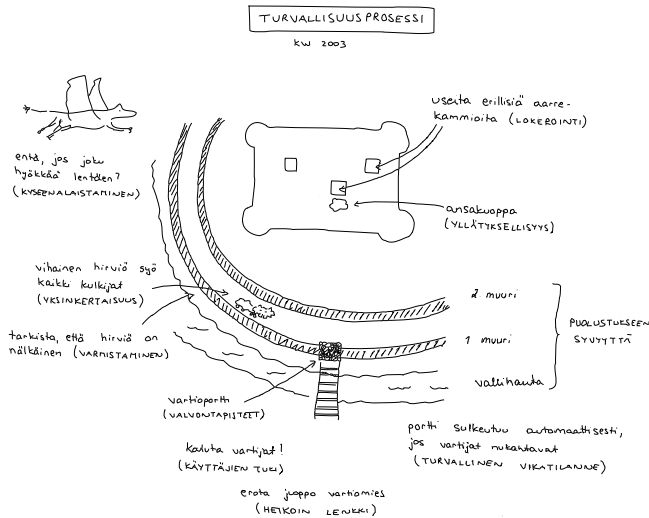 TURVALLISUUSPROSESSI
KW 2003
useita erillisiä aarre-
kammioita (LOKEROINTI)
entä, jos joku
hyökkää lentäen?
(KYSEENALAISTAMINEN)
ansakuoppa
(YLLÄTYKSELLISYYS)
vihainen hirviö syö
kaikki kulkijat
(YKSINKERTAISUUS)
2 muuri
PUOLUSTUKSEEN
SYVYYTTÄ
tarkista, että hirviö on
nälkäinen (VARMISTAMINEN)
1 muuri
vallihauta
vartioportti
(VALVONTAPISTEET)
portti sulkeutuu automaattisesti,
jos vartijat nukahtavat
(TURVALLINEN VIKATILANNE)
kouluta vartijat!
(KÄYTTÄJIEN TUKI)
erota juoppo vartiomies
(HEIKOIN LENKKI)